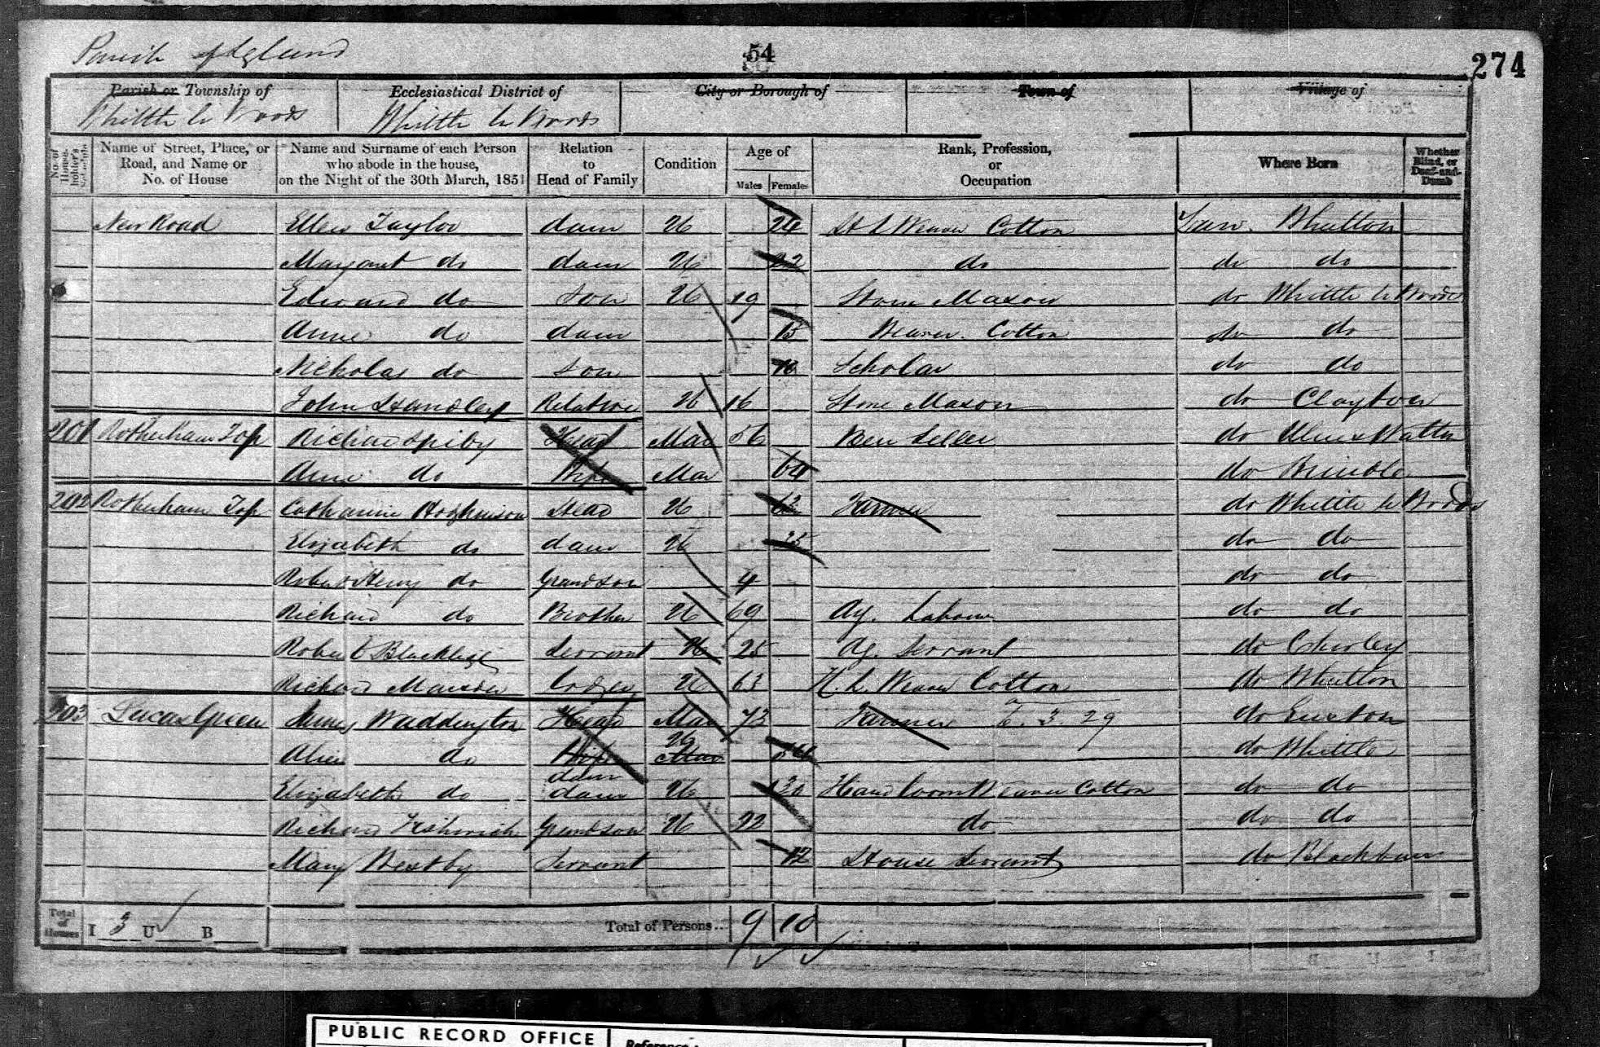 Parish of Leyland
54
274
Parish or Township of
Whittle le Woods
Ecclesiastical District of
Whittle le Woods
City or Borough of
Town of
Village of
No. of House-holder's Schedule
Name of Street, Place, or Road, and Name or No. of House
Name and Surname of each Person who abode in the house, on the Night of the 30th March, 1851
Relation to Head of Family
Condition
Age of
Males
Females
Rank, Profession, or Occupation
Where Born
Whether Blind, or Deaf-and-Dumb
New Road Ellen Taylor daur U H L Weaver Cotton Lanc. Wheelton
Margaret do daur U 22 do do do
Edward do Son U 19 Stone Mason do Whittle le Woods
Anne do daur 15 Weaver Cotton do do
Nicholas do Son Scholar do do
John Handley Relative U 16 Stone Mason do Clayton
201 Rotherham Top Richard Spiby Head Mar 56 Beer Seller do Ulnes Walton
Anne do Wife Mar 64 do Brindle
202 Rotherham Top Catharine Hodgkinson Head U Farmer do Whittle le Woods
Elizabeth do daur U 25 do do
Robert Henry do Grandson 4 do do
Richard do Brother U 69 Ag. Labourer do do
Robert Servant U 25 Ag. Servant do Chorley
Richard Marsden Lodger U 63 H. L. Weaver Cotton do Wheelton
203 Lucas Green James Waddington Head Mar 73 Farmer 3 29 do Euxton
Alice do Wife daur Mar U do Whittle
Elizabeth do daur U 30 Hand loom Weaver Cotton do do
Richard Grandson U 22 do do do
Mary Servant 12 House Servant do Blackburn
Total of Houses
I 3 U B
Total of Persons... 9 10
PUBLIC RECORD OFFICE
Reference: